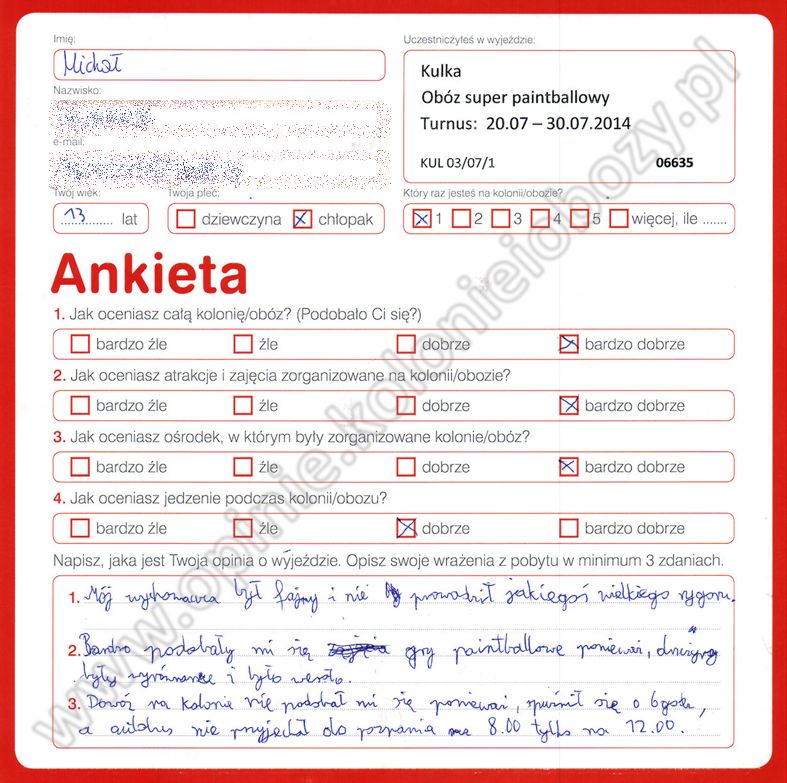 Imię:
Uczestniczyłeś w wyjeździe:
Michał
Kulka
Nazwisko:
Obóz super paintballowy
Turnus: 20.07 – 30.07.2014
e-mail:
KUL 03/07/1 06635
Twój wiek:
Twoja płeć:
Który raz jesteś na kolonii/obozie?
13 lat
dziewczyna chłopak
1 2 3 4 5 więcej, ile .......
Ankieta
1. Jak oceniasz całą kolonię/obóz? (Podobało Ci się?)
bardzo źle źle dobrze bardzo dobrze
2. Jak oceniasz atrakcje i zajęcia zorganizowane na kolonii/obozie?
bardzo źle źle dobrze bardzo dobrze
3. Jak oceniasz ośrodek, w którym były zorganizowane kolonie/obóz?
bardzo źle źle dobrze bardzo dobrze
4. Jak oceniasz jedzenie podczas kolonii/obozu?
bardzo źle źle dobrze bardzo dobrze
Napisz, jaka jest Twoja opinia o wyjeździe. Opisz swoje wrażenia z pobytu w minimum 3 zdaniach.
1. Mój wychowawca był fajny i nie prowadził jakiegoś wielkiego rygoru.
2. Bardzo podobały mi się gry paintballowe ponieważ, drużyny
były wyrównane i było wesoło.
3. Dowóz na kolonie nie podobał mi się ponieważ, spóźnił się o 6 godz,
a autobus nie przyjechał do poznania na 8.00 tylko na 12.00.
www.opinie.kolonieiobozy.pl